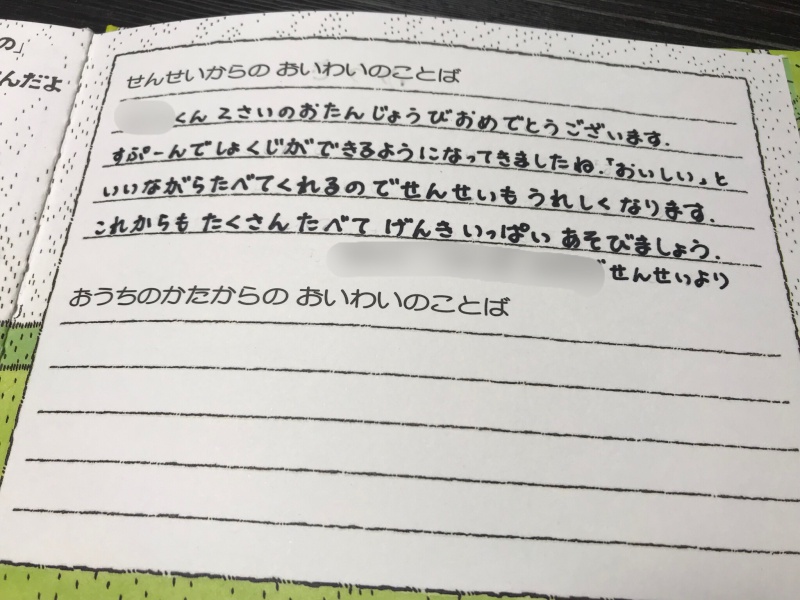 の」
んだよ
せんせいからの おいわいのことば
くん 2さいのおたんじょうびおめでとうございます.
すぷーんでしょくじができるようになってきましたね.「おいしい」と
いいながらたべてくれるのでせんせいも うれしくなります.
これからも たくさん たべて げんき いっぱい あそびましょう.
せんせいより
おうちのかたからの おいわいのことば